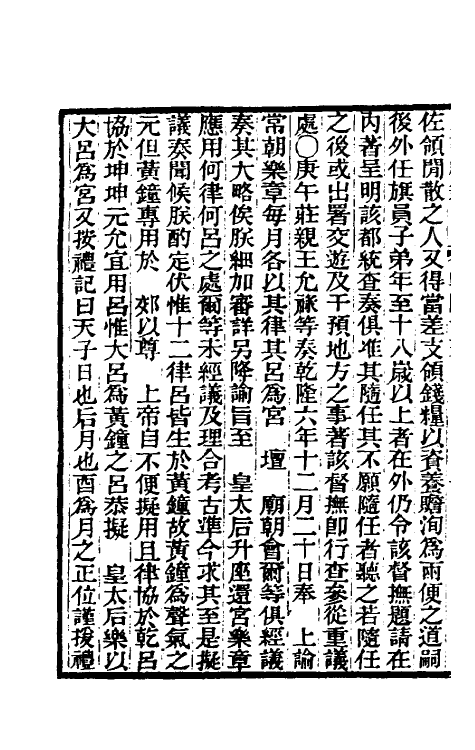 佐領閒散之人又得當差支領錢糧以資養贍洵爲兩便之道嗣
後外任旗員子弟年至十八歲以上者在外仍令該督撫題請在
內著呈明該都統查奏俱准其隨任其不願隨任者聽之若隨任
之後或出署交遊及干預地方之事著該督撫卽行查參從重議
處〇庚午莊親王允祿等奏乾隆六年十二月二十日奉　上諭
常朝樂章每月各以其律其呂爲宮　壇　廟朝會爾等俱經議
奏其大略俟朕細加審詳另降諭旨至　皇太后升座還宮樂章
應用何律何呂之處爾等未經議及理合考古準今求其至是擬
議奏聞候朕酌定伏惟十二律呂皆生於黃鐘故黃鐘爲聲氣之
元但黃鐘專用於　郊以尊　上帝自不便擬用且律協於乾呂
協於坤坤元允宜用呂惟大呂爲黃鐘之呂恭擬　皇太后樂以
大呂爲宮又按禮記曰天子日也后月也酉爲月之正位謹按禮